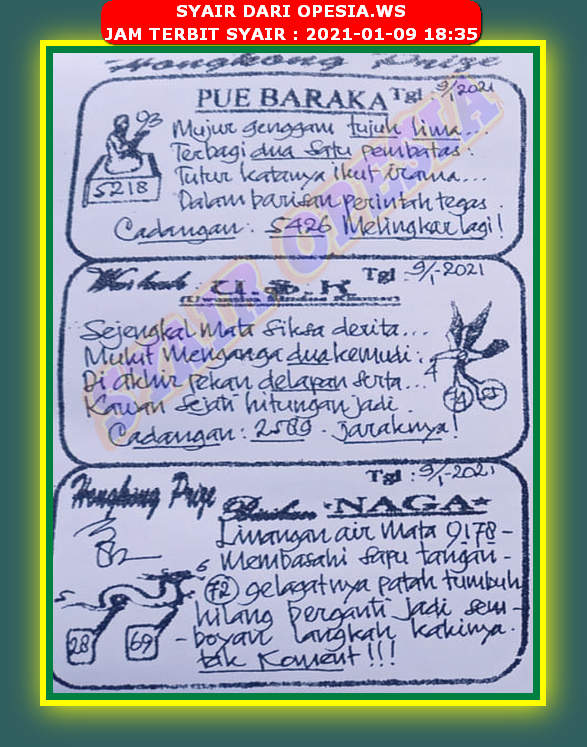 SYAIR DARI OPESIA.WS
JAM TERBIT SYAIR : 2021-01-09 18:35
Hongkong Prize
PUE BARAKA Tgl 9/1-2021
93
Mujur genggam tujuh lima...
Terbagi dua satu pembatas.
Tutur katanya ikut irama...
Dalam barisan perintah tegas.
5218
Cadangan: 5426 Melingkar lagi!
SYAIR OPESIA
Tgl : 9/1-2021
Sejengkal mata siksa derita...
Mulut Menganga dua kemudi.
Di akhir pekan delapan serta...
Kawan sejati hitungan jadi.
4
Cadangan: 2589. jaraknya!
Tgl : 9/1-2021
Hongkong Prize
NAGA
Linangan air mata 9178-
Membasahi sapu tangan-
6
72 gelagatnya patah tumbuh
hilang berganti jadi sem-
5
28 69
-boyan langkah kakinya.
tak Koment!!!